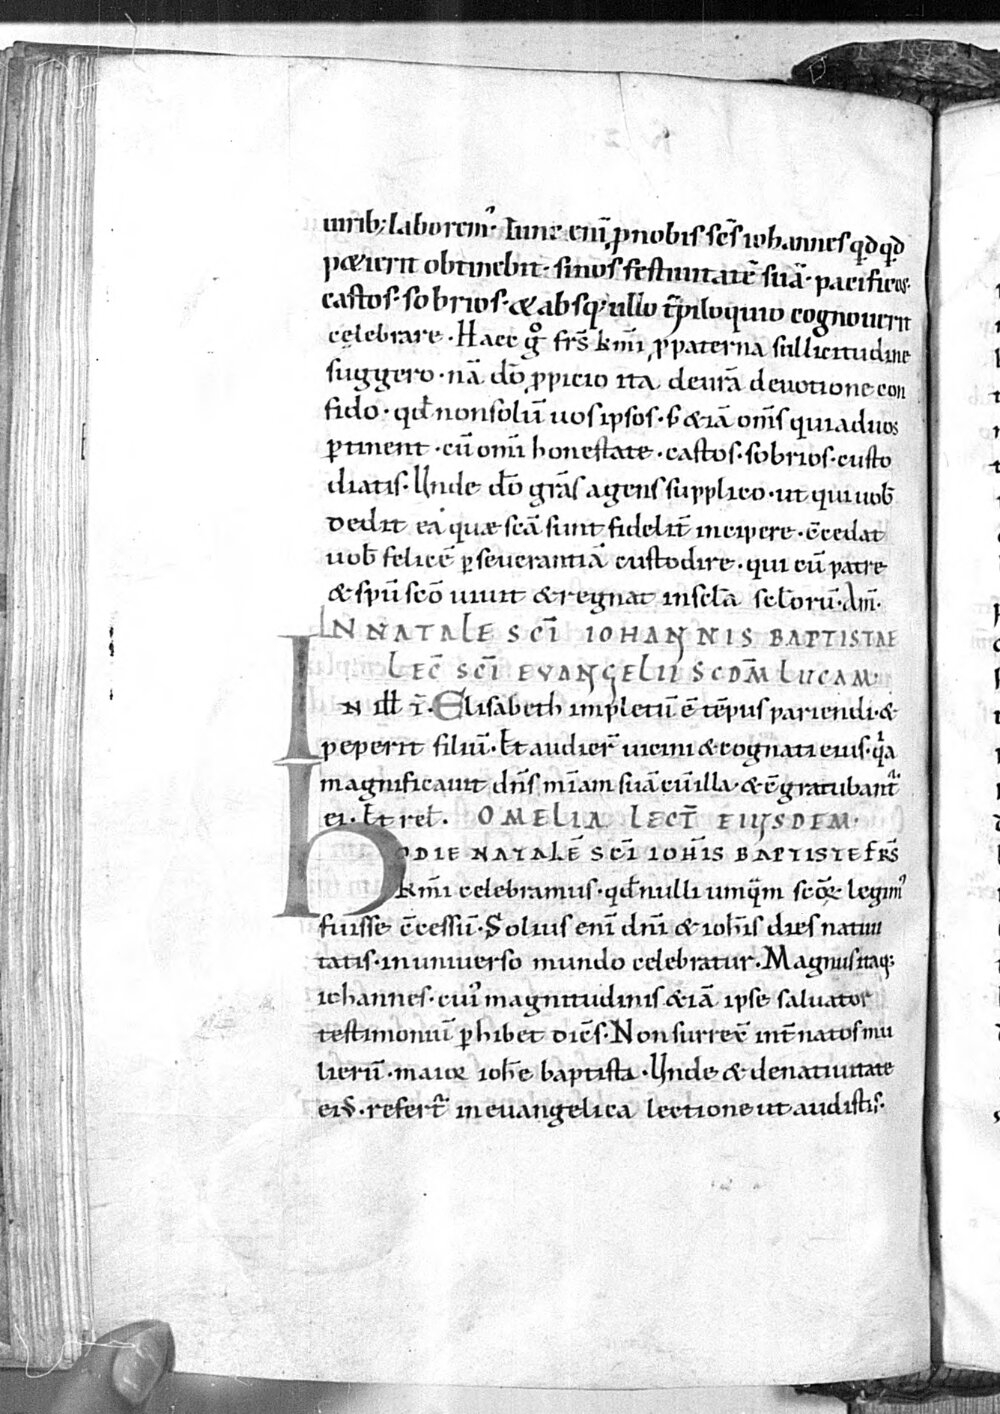 urrib; laborem᷒. Tunc eni̅ ꝓ nobis sc̅s iohannes qd qd
petierit obtinebit. si nos festiuitate̅ sua̅. pacificos.
castos. sobrios. & absq; ullo t̅piloquio cognouerit
celebrare. Haec g̊ frs̅ km̅i ꝓ paterna sullicitudine
suggero. na̅ do̅ ꝓpicio ita de ur̅a deuotione con
fido. qđ non solu̅ uos ipsos. s; &ia̅ om̅s qui ad uos
ꝑtinent. cu̅ omi̅ honestate. castos. sobrios. custo
diatis. Unde do̅ gra̅s agens supplico. ut qui uob̅
dedit ea quae sc̅a sunt fidelit̅ incipere. c̅cedat
uob̅ felice̅ ꝑseuerantia̅ custodire. qui cu̅ patre
& spu̅ sc̅o uiuit & regnat in scl̅a scl̅oru̅. Am̅.
IN NATALE SC̅I IOHANNIS BAPTISTAE
LEC̅ SC̅I EVANGELII SCDM̅ LUCAM.
IN ill̅ t̅. Elisabeth impletu̅ e̅ te̅pus pariendi. &
peperit filiu̅. Et audier̅ uicini & cognati eius. quia
magnificauit dn̅s mi̅am sua̅ cu̅ illa. & c̅gratubant᷑
ei. Et rel̅. OMELIA LECT̅ EIUSDEM.
HODIE NATALE̅ SC̅I IOH̅IS BAPTISTE FRS̅
km̅i celebramus. qđ nulli umq̅m sc̅oꝝ legim᷒
fuisse c̅cessu̅. Solius eni̅ dn̅i & ioh̅is dies natiui
tatis. in uniuerso mundo celebratur. Magnus itaq;
iohannes. cui᷒ magnitudinis &ia̅ ipse saluator
testimoniu̅ ꝑhibet dic̅s. Non surrex̅ int̅ natos mu
lieru̅. maior ioh̅e baptista. Unde & de natiuitate
ei᷒. refert᷑ in euangelica lectione ut audistis.